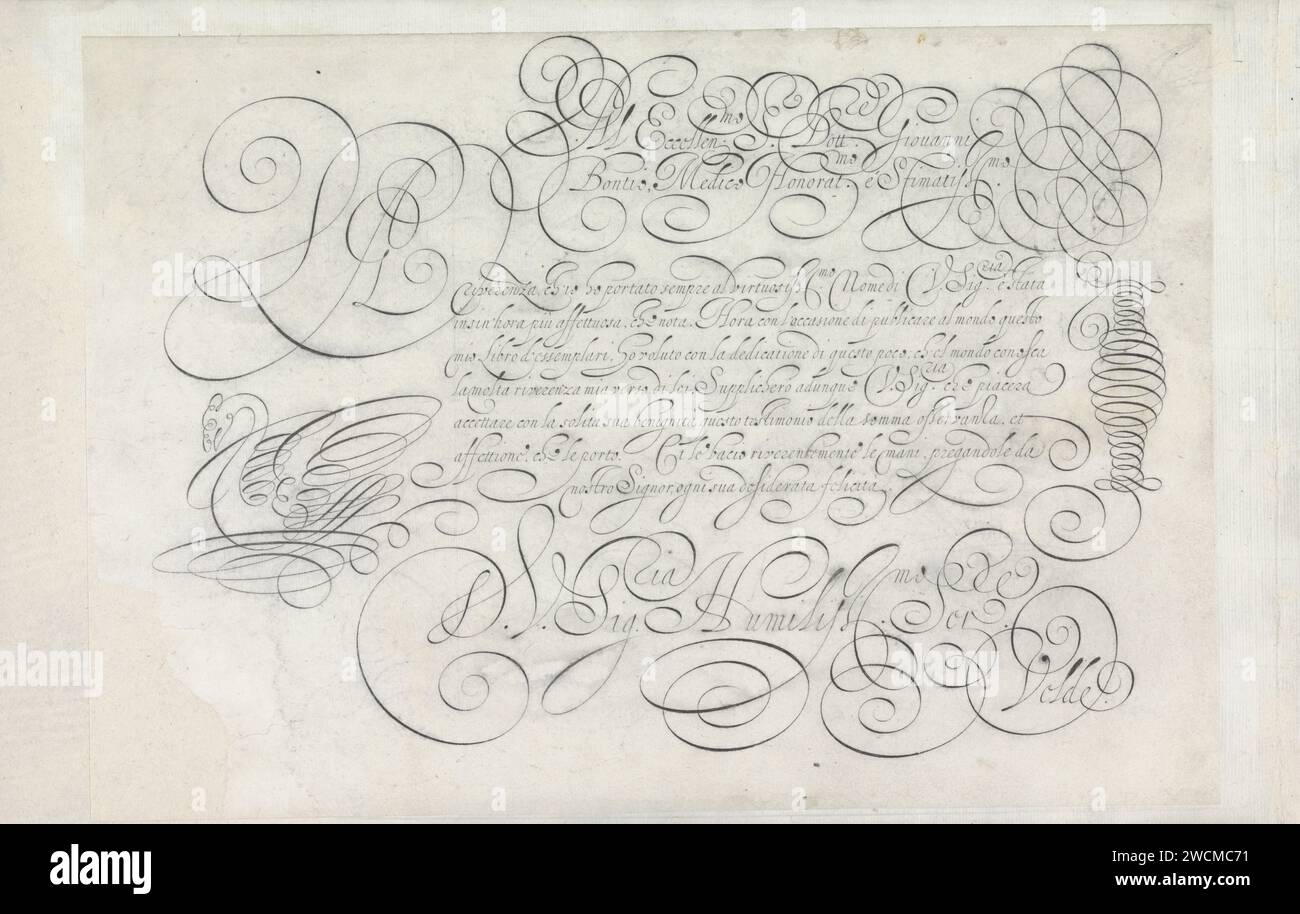 All Eccellen.mo S. Dott. Giovanni
Bontio, Medico Honorat.mo e Stimatiss.mo
La riverenza, ch'io ho portato sempre al virtuosiss.mo Nome di V. Sig.ria è stata
insin'hora più affettuosa, che nota. Hora con l'occasione di publicare al mondo questo
mio Libro d'essemplari, ho voluto con la dedicatione di questo poco, ch'el mondo conosca
la molta riverenza mia verso di lei. Supplichero adunque V. Sig.ria che piacera
accettare con la solita sua benignità questo testimonio della somma osservanza, et
affettione, che le porto. Et le bacio riverentemente le mani, pregandole da
nostro Signor, ogni sua desiderata felicita.
D. V. Sig.ria Humiliss.mo Ser.re
Velde.
alamy
Image ID: 2WCMC71
www.alamy.com